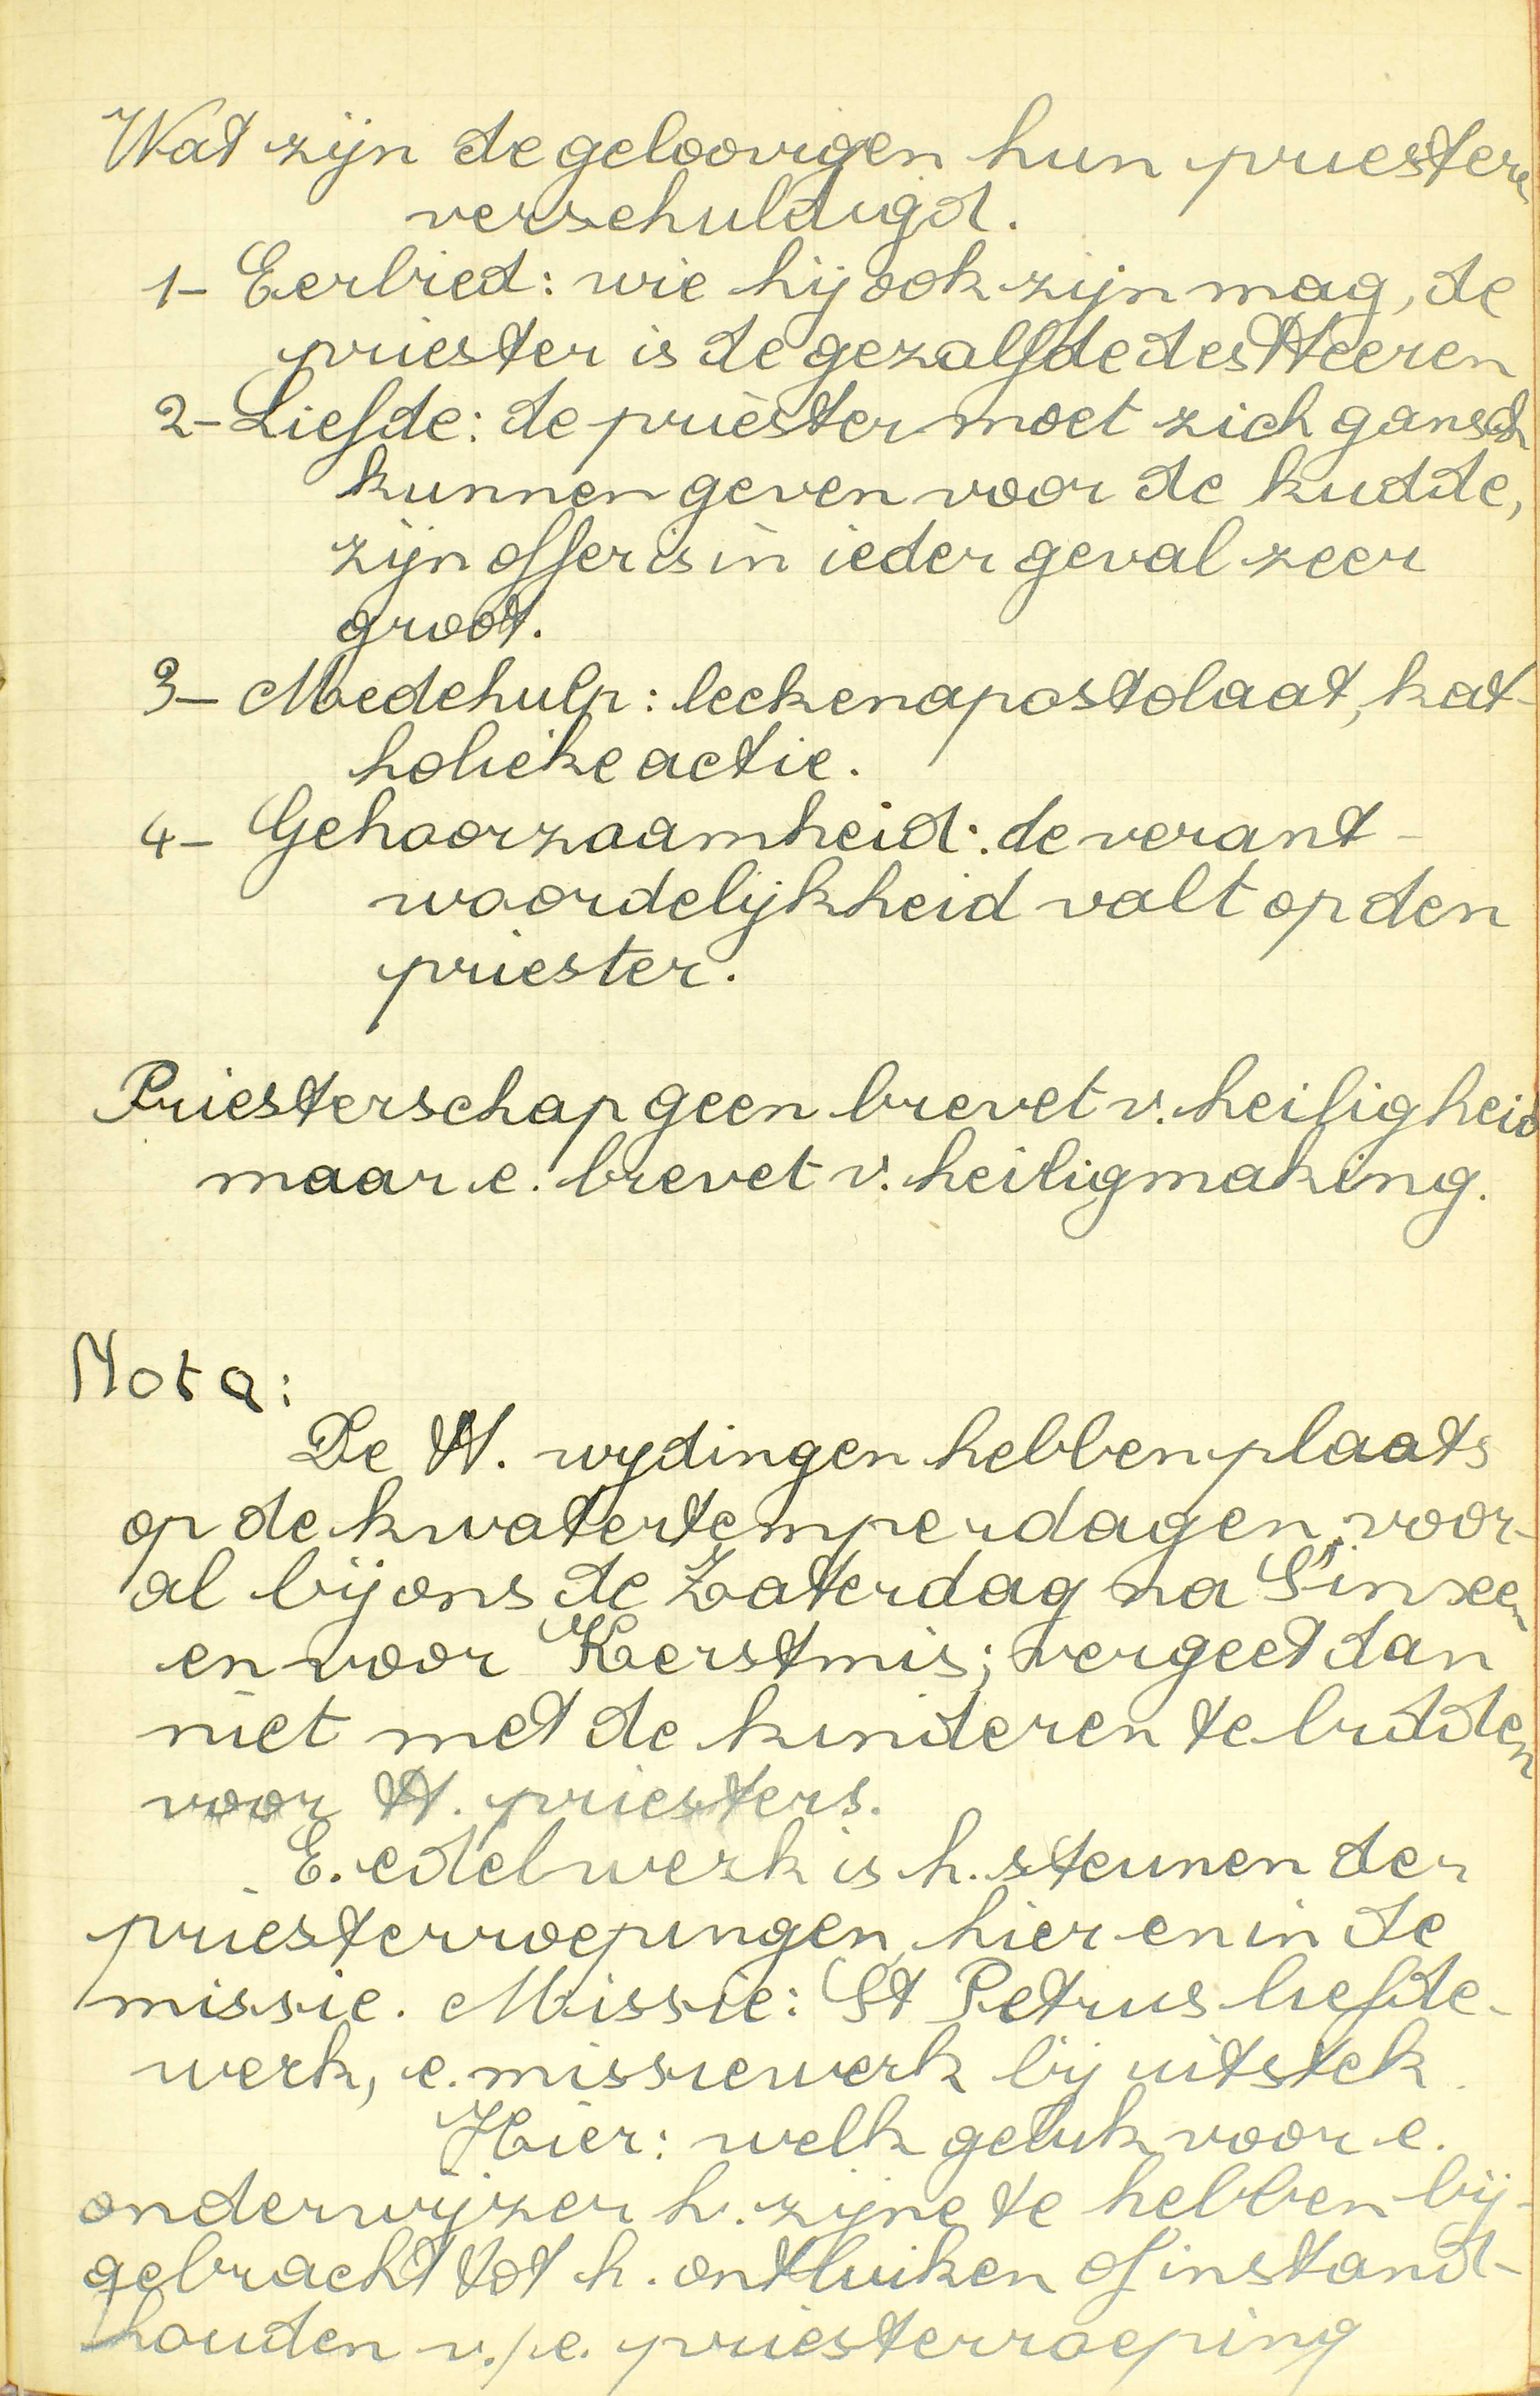 Wat zijn de geloovigen hun priesters
verschuldigd.
1- Eerbied: wie hij ook zijn mag, de
priester is de gezalfde des Heeren
2- Liefde: de priester moet zich gansch
kunnen geven voor de kudde,
zijn offer is in ieder geval zeer
groot.
3- Medehulp: leekenapostolaat, kat-
holieke actie.
4- Gehoorzaamheid: de verant-
woordelijkheid valt op den
priester.
Priesterschap geen brevet v. heiligheid
maar e. brevet v. heiligmaking.
Nota:
De H. wydingen hebben plaats
op de kwatertemperdagen, voor-
al bij ons de Zaterdag na Sinxen
en voor Kerstmis; vergeet dan
niet met de kinderen te bidden
voor H. priesters.
E. edel werk is h. steunen der
priesterroepingen, hier en in de
missie. Missie: St Petrus liefde-
werk, e. missiewerk bij uitstek.
Hier: welk geluk voor e.
onderwijzer h. zijne te hebben bij-
gebracht tot h. ontluiken of instand-
houden v./e. priesterroeping